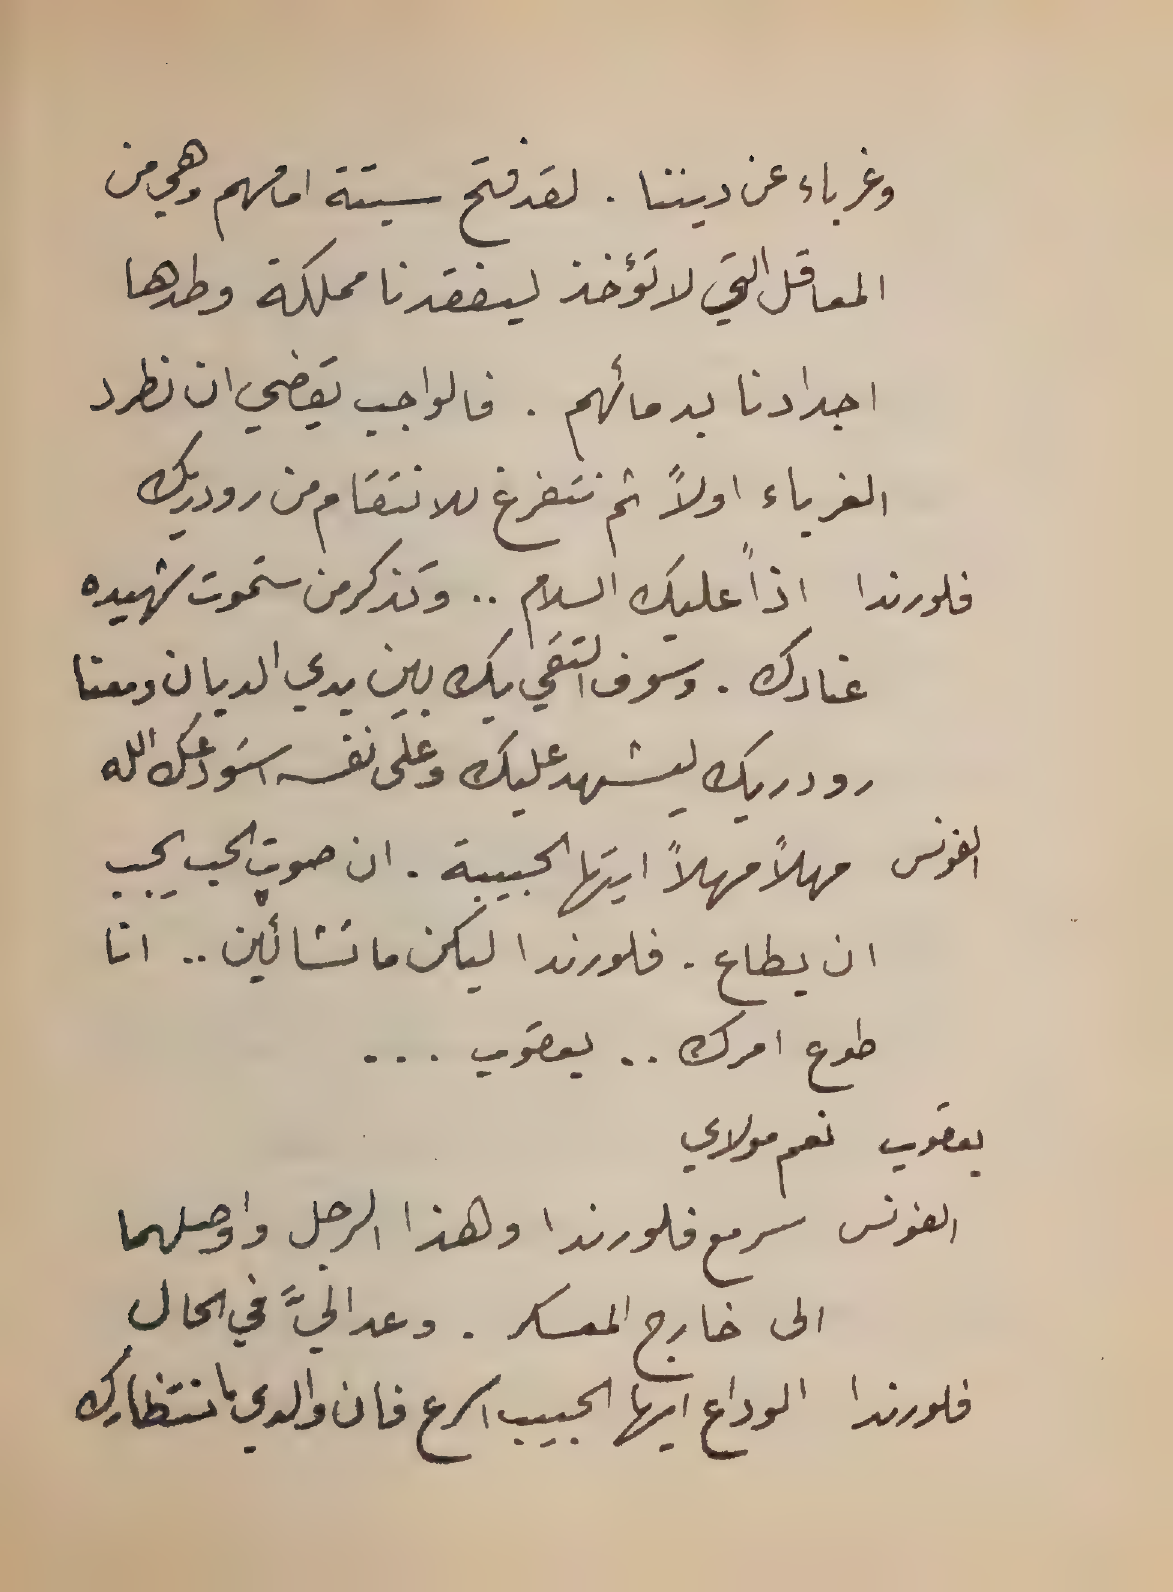 وغرباء عن ديننا . لقد فتح سبتة امامهم وهي من
المعاقل التي لا تؤخذ ليفقدنا مملكة وطدها
اجدادنا بدمائهم . فالواجب يقضي ان نطرد
الغرباء اولاً ثم نتفرغ للانتقام من رودريك
فلورندا اذاً عليك السلام .. وتذكر من ستموت شهيده
عنادك . وسوف التقي بك بين يدي الديان ومعنا
رودريك ليشهد عليك وعلى نفسه استودعك الله
الفونس مهلاً مهلاً ايتها الحبيبة . ان صوت الحب يجب
ان يطاع . فلورندا ليكن ما تشائين .. انا
طوع امرك .. يعقوب ...
يعقوب نعم مولاي
الفونس سر مع فلورندا وهذا الرجل واوصلهما
الى خارج المعسكر . وعد اليَّ في الحال
فلورندا الوداع ايها الحبيب اسرع فان والدي بانتظارك